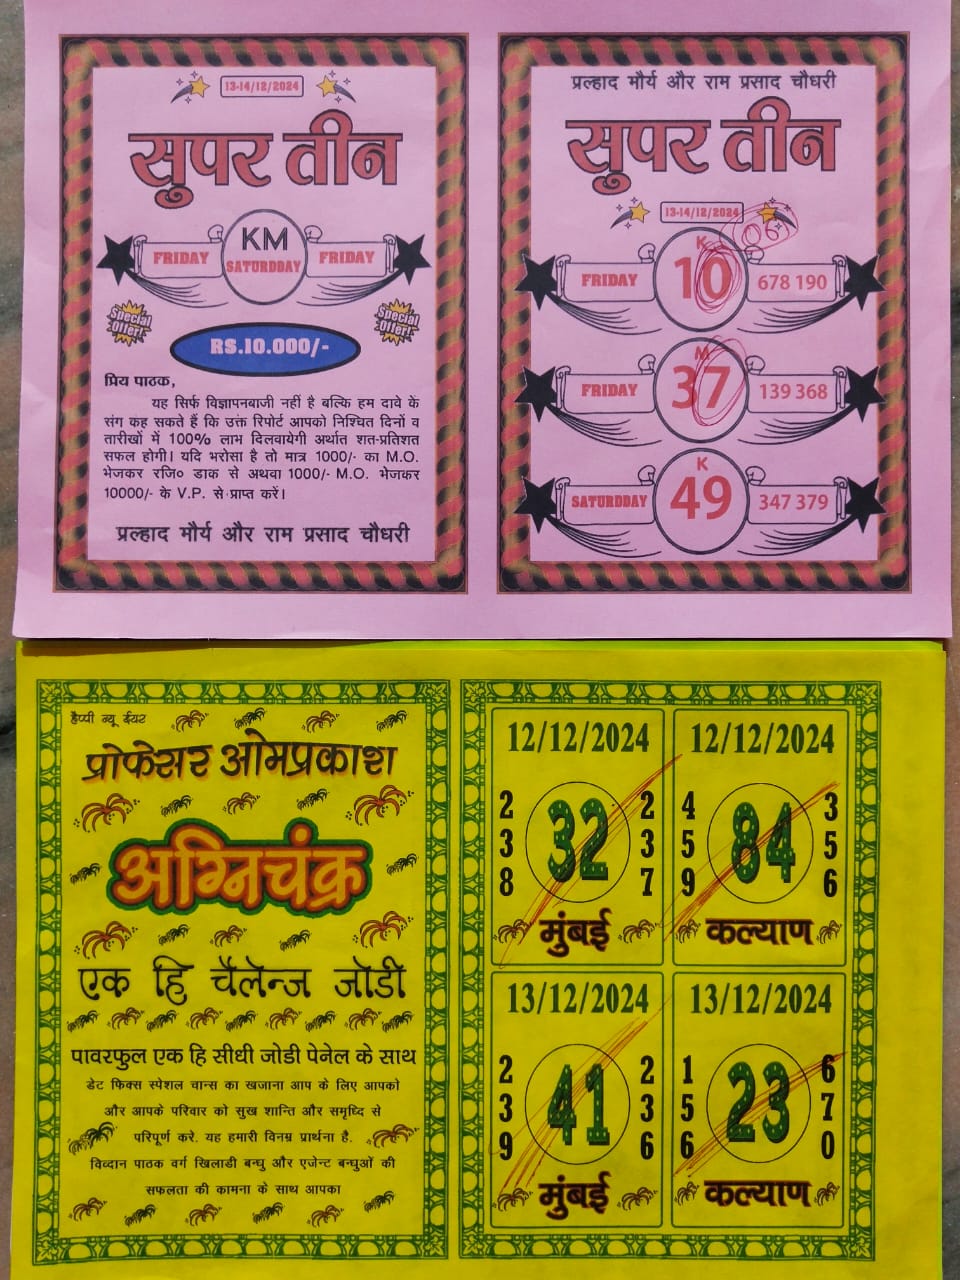 13-14/12/2024
सुपर तीन
KM
FRIDAY SATURDDAY FRIDAY
Special Offer!
Special Offer!
RS.10.000/-
प्रिय पाठक,
यह सिर्फ विज्ञापनबाजी नहीं है बल्कि हम दावे के
संग कह सकते हैं कि उक्त रिपोर्ट आपको निश्चित दिनों व
तारीखों में 100% लाभ दिलवायेगी अर्थात शत-प्रतिशत
सफल होगी। यदि भरोसा है तो मात्र 1000/- का M.O.
भेजकर रजि० डाक से अथवा 1000/- M.O. भेजकर
10000/- के V.P. से प्राप्त करें।
प्रल्हाद मौर्य और राम प्रसाद चौधरी
प्रल्हाद मौर्य और राम प्रसाद चौधरी
सुपर तीन
13-14/12/2024
06
K
FRIDAY 10 678 190
M
FRIDAY 37 139 368
K
SATURDDAY 49 347 379
हैप्पी न्यू ईयर
प्रोफेसर ओमप्रकाश
अग्निचंक्र
एक हि चैलेन्ज जोडी
पावरफुल एक हि सीधी जोडी पेनेल के साथ
डेट फिक्स स्पेशल चान्स का खजाना आप के लिए आपको
और आपके परिवार को सुख शान्ति और समृध्दि से
परिपूर्ण करे. यह हमारी विनम्र प्रार्थना है.
विव्दान पाठक वर्ग खिलाडी बन्धु और एजेन्ट बन्धुओं की
सफलता की कामना के साथ आपका
12/12/2024
2 3 8 32 2 3 7
मुंबई
12/12/2024
4 5 9 84 3 5 6
कल्याण
13/12/2024
2 3 9 41 2 3 6
मुंबई
13/12/2024
1 5 6 23 6 7 0
कल्याण